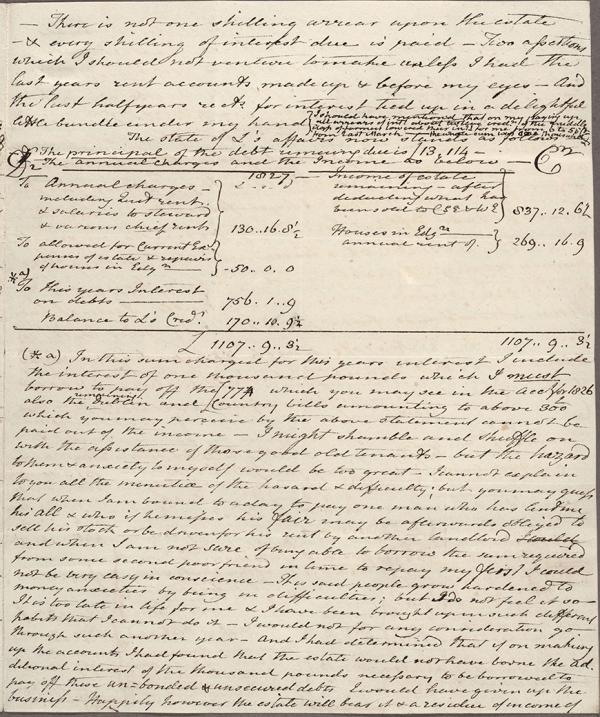 — There is not one shilling arrear upon the estate
— & every shilling of interest due is paid — Two assertions
which I should not venture to make unless I had the
last years rent accounts made up & before my eyes — And
the last half years rects for interest tied up in a delightful
little bundle under my hand
I should have mentioned that on my taking up
all arrears
and
from last
The state of L's affairs now stands as follows
The principal of the debt remaining due is / 13, 114
Dr The annual charges and the Income as below — Cr
1827 —
To Annual charges —
including Quit rent.
& salaries to steward
& various chief rents 130..16..8½
Income of estate
remaining — after
deducting what has
been sold to CSE & WE 837..12..6½
To allowed for current Ex
penses of estate & repairs
of houses in Edgn — 50..0..0
Houses in Edgn
annual rent of. 269..16..9
*a)
To this years Interest
on debts — 756..1..9
Balance to L's Credt 170..10..9½
£ 1107..9..3½ 1107..9..3½
(*a) In this sum charged for this years interest I include
the interest of one thousand pounds which I must
borrow to pay off the 774 which you may see in the acct for 1826
also the remaining Dublin and Country bills amounting to above 300
which you may perceive by the above statement cannot be
paid out of the income — I might shamble and shuffle on
with the assistance of those good old tenants — but the hazard
to them & anxiety to myself would be too great — I cannot explain
to you all the minutiæ of the hasard & difficulty; but you may guess
that when I am bound to a day to pay one man who has lent me
his all & who if he misses his fair may be afterwards obliged to
sell his stock or be driven for his rent by another landlord
and when I am not sure of being able to borrow the sum required
from some second poor friend in time to repay my first I could
not be very easy in conscience — It is said people grow hardened to
money anxieties by being in difficulties; but I do not feel it so —
It is too late in life for me & I have been brought up in such different
habits that I cannot do it — I would not for any consideration go
through such another year — And I had determined that if on making
up the accounts I had found that the estate would not have borne the ad.
ditional interest of the thousand pounds necessary to be borrowed to
pay off these un=bonded & unsecured debts I would have given up the
business — Happily however the estate will bear it & a residue of income of